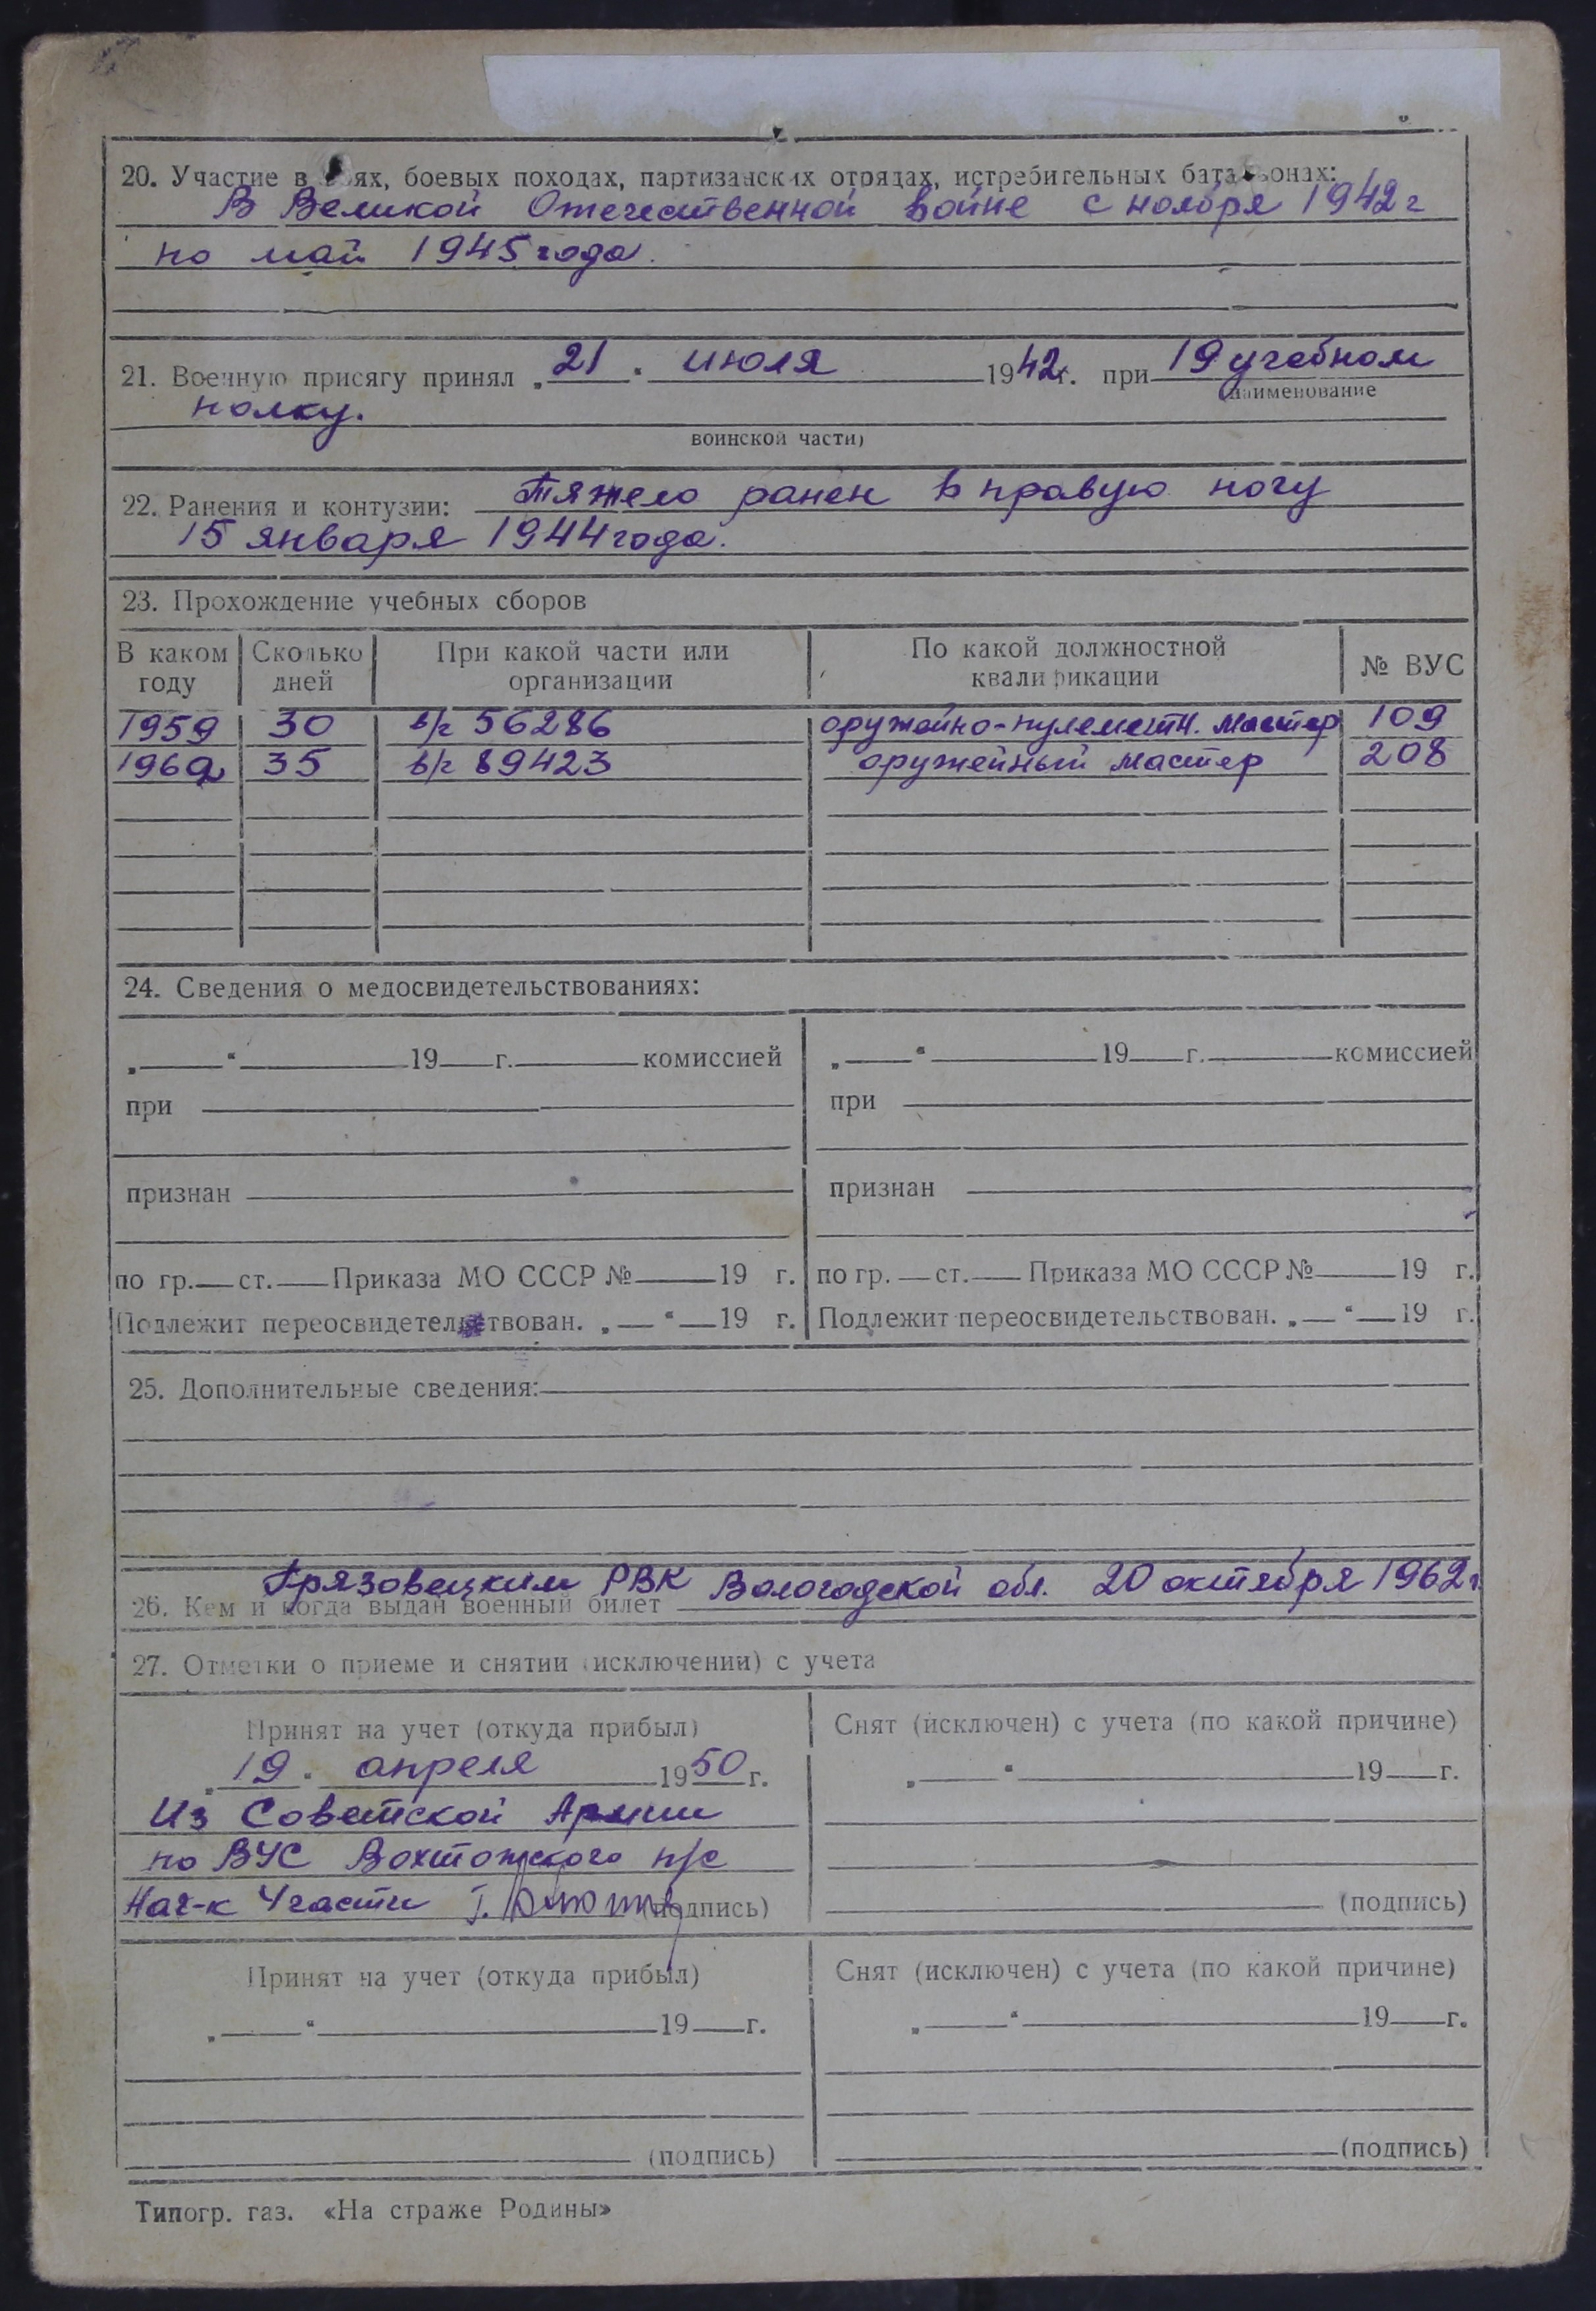 20. Участие в боях, боевых походах, партизанских отрядах, истребительных батальонах:
В Великой Отечественной войне с ноября 1942 г
по май 1945 года.
21. Военную присягу принял „21" июля 1942 г. при 19 учебном
(наименование
полку.
воинской части)
22. Ранения и контузии: Тяжело ранен в правую ногу
15 января 1944 года.
23. Прохождение учебных сборов
В каком году Сколько дней При какой части или организации По какой должностной квалификации № ВУС
1959 30 в/г 56286 оружейно-пулеметн. мастер 109
35 в/г 89423 оружейный мастер 208
24. Сведения о медосвидетельствованиях:
„ " 19 г. комиссией
при
признан
по гр. ст. Приказа МО СССР № 19 г.
Подлежит переосвидетельствован. „ " 19 г.
„ " 19 г. комиссией
при
признан
по гр. ст. Приказа МО СССР № 19 г.
Подлежит переосвидетельствован. „ " 19 г.
25. Дополнительные сведения:
Грязовецким РВК Вологодской обл. 20 октября 1962 г.
26. Кем и когда выдан военный билет
27. Отметки о приеме и снятии (исключении) с учета
Принят на учет (откуда прибыл)
„19" апреля 1950 г.
Из Советской Армии
по ВУС Вохтожского п/с
Нач-к 4 части (подпись)
Снят (исключен) с учета (по какой причине)
„ " 19 г.
(подпись)
Принят на учет (откуда прибыл)
„ " 19 г.
(подпись)
Снят (исключен) с учета (по какой причине)
„ " 19 г.
(подпись)
Типогр. газ. «На страже Родины»